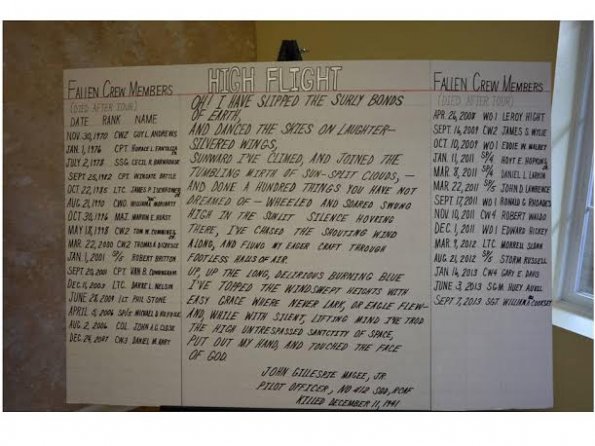 FALLEN CREW MEMBERS
(DIED AFTER TOUR)
DATE RANK NAME
NOV. 30, 1970 CW2 GUY L. ANDREWS
JAN. 1, 1976 CPT. HORACE L.
JULY 2, 1978 SSG CECIL R. BARNHOUSE
SEPT. 26, 1982 CPT. WINGATE BATTLE
OCT. 22, 1985 LTC. JAMES P.
AUG. 21, 1990 CWO WILLIAM
OCT. 30, 1996 MAJ. MARVIN E. HURST
MAY 18, 1998 CW2 TOM W. CUMMINGS
MAR. 22, 2000 CW2 THOMAS A.
JAN. 1, 2001 SP/5 ROBERT BRITTON
SEPT. 20, 2001 CPT. VAN B. CUNNINGHAM
DEC. 11, 2003 LTC. DARREL L. NELSON
JUNE 28, 2004 1LT PHIL STONE
APRIL 4, 2006 SP/5 MICHAEL D.
AUG. 2, 2006 COL. JOHN A.G. CLOSE
DEC. 24, 2007 CW3 DANIEL M. HART
HIGH FLIGHT
OH! I HAVE SLIPPED THE SURLY BONDS
OF EARTH,
AND DANCED THE SKIES ON LAUGHTER-
SILVERED WINGS,
SUNWARD I'VE CLIMED, AND JOINED THE
TUMBLING MIRTH OF SUN-SPLIT CLOUDS, -
AND DONE A HUNDRED THINGS YOU HAVE NOT
DREAMED OF - WHEELED AND SOARED SWUNG
HIGH IN THE SUNLIT SILENCE HOVRING
THERE, I'VE CHASED THE SHOUTING WIND
ALONG, AND FLUNG MY EAGER CRAFT THROUGH
FOOTLESS HALLS OF AIR.
UP, UP THE LONG, DELIRIOUS BURNING BLUE
I'VE TOPPED THE WINDSWEPT HEIGHTS WITH
EASY GRACE WHERE NEVER LARK, OR EAGLE FLEW-
AND, WHILE WITH SILENT, LIFTING MIND I'VE TROD
THE HIGH UNTRESPASSED SANCTITY OF SPACE,
PUT OUT MY HAND, AND TOUCHED THE FACE
OF GOD.
JOHN GILLESPIE MAGEE, JR.
PILOT OFFICER, NO 412 SQD, RCAF
KILLED DECEMBER 11, 1941
FALLEN CREW MEMBERS
(DIED AFTER TOUR)
APR. 26, 2008 WO1 LEROY HIGHT
SEPT. 16, 2009 CW2 JAMES S. WYLIE
OCT. 10, 2009 WO1 EDDIE W.
JAN. 11, 2011 SP/4 HOYT E. HOPKINS
MAR. 8, 2011 SP/4 DANIEL L. LARKIN
MAR. 22, 2011 SP/5 JOHN D. LAWRENCE
SEPT. 17, 2011 WO1 RONALD G. RHOADES
NOV. 10, 2011 CW4 ROBERT WALDO
DEC. 1, 2011 WO1 EDWARD RICKEY
MAR. 9, 2012 LTC. MORRELL SLOAN
AUG. 21, 2012 SP/5 STORM RUSSELL
JAN. 16, 2013 CW4 GARY E. DAVIS
JUNE 3, 2013 SGM HUEY ADELL
SEPT. 7, 2013 SGT WILLIAM